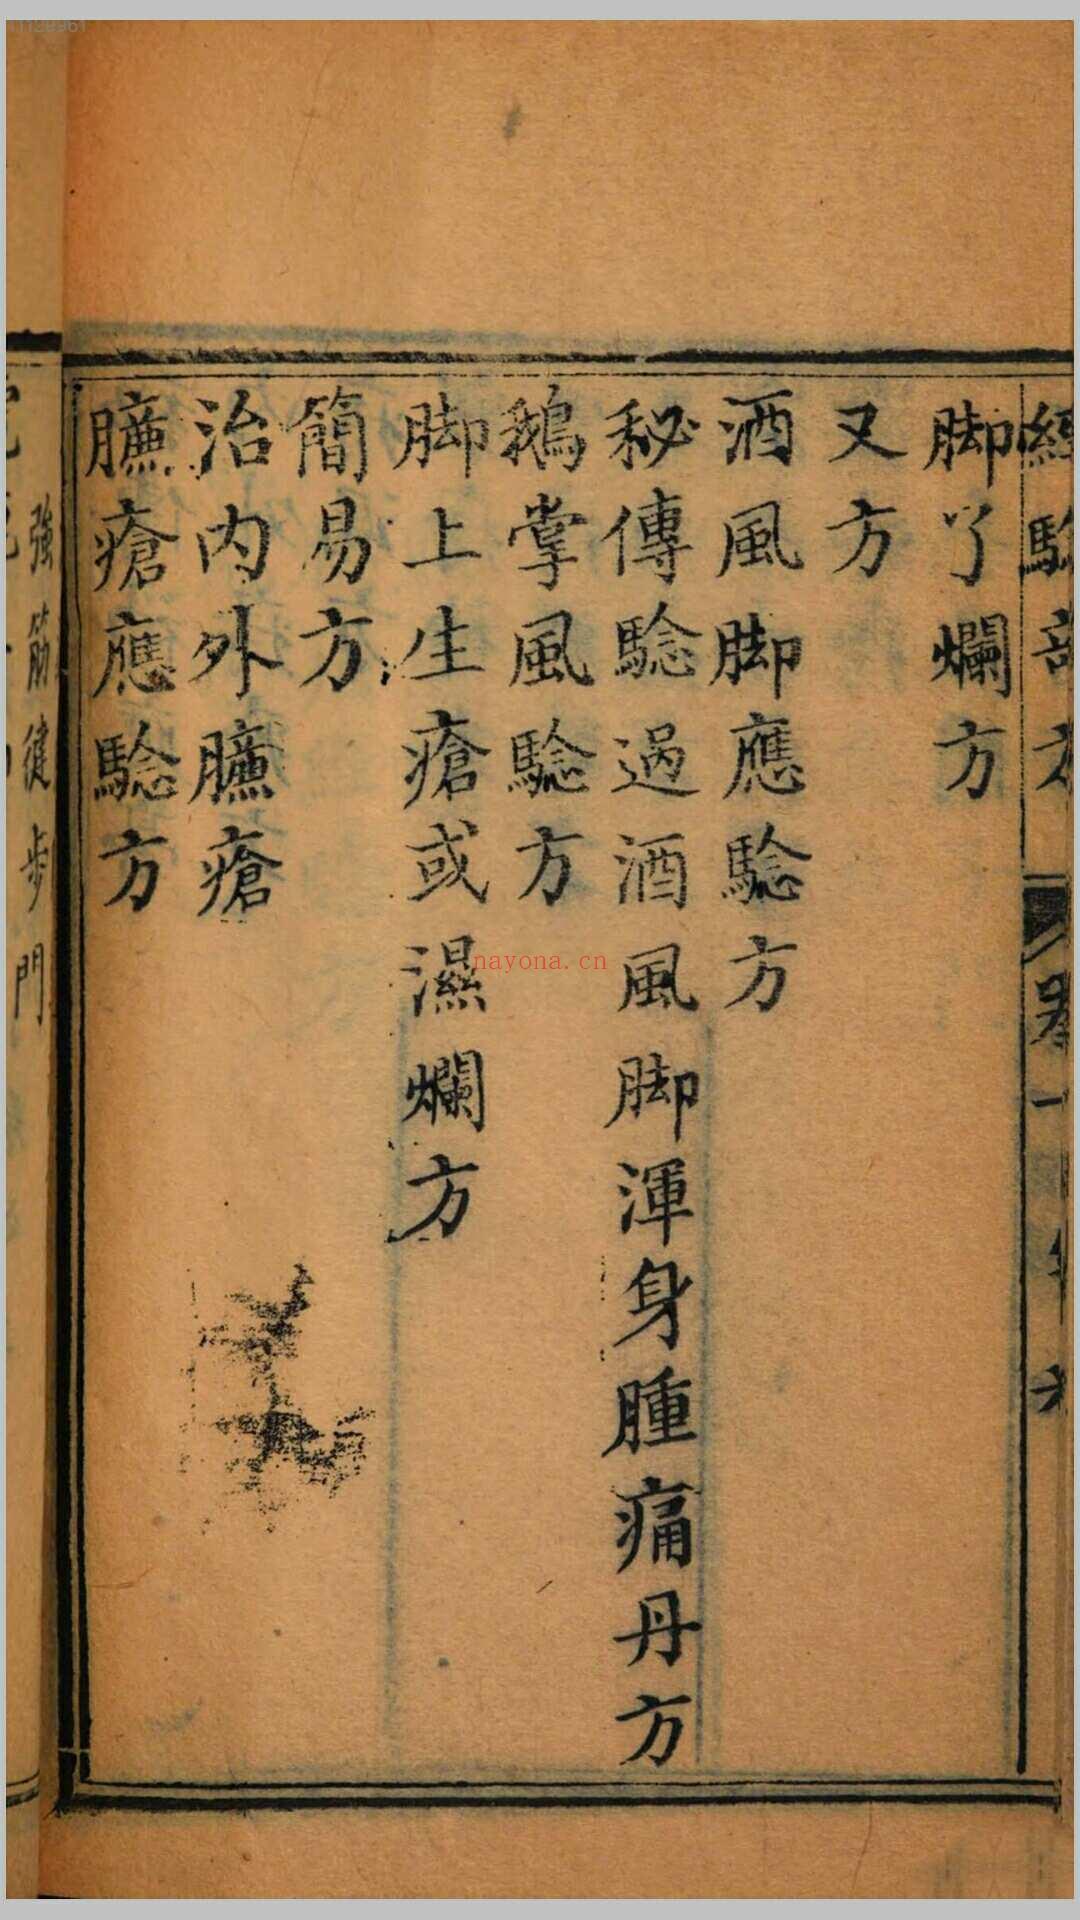 脚丫爛方
又方
酒風脚應騐方
秘傳騐過酒風脚渾身腫痛丹方
鵝掌風騐方
脚上生瘡或濕爛方
簡易方
治內外臁瘡
臁瘡應騐方
強筋健步門
nayona.cn